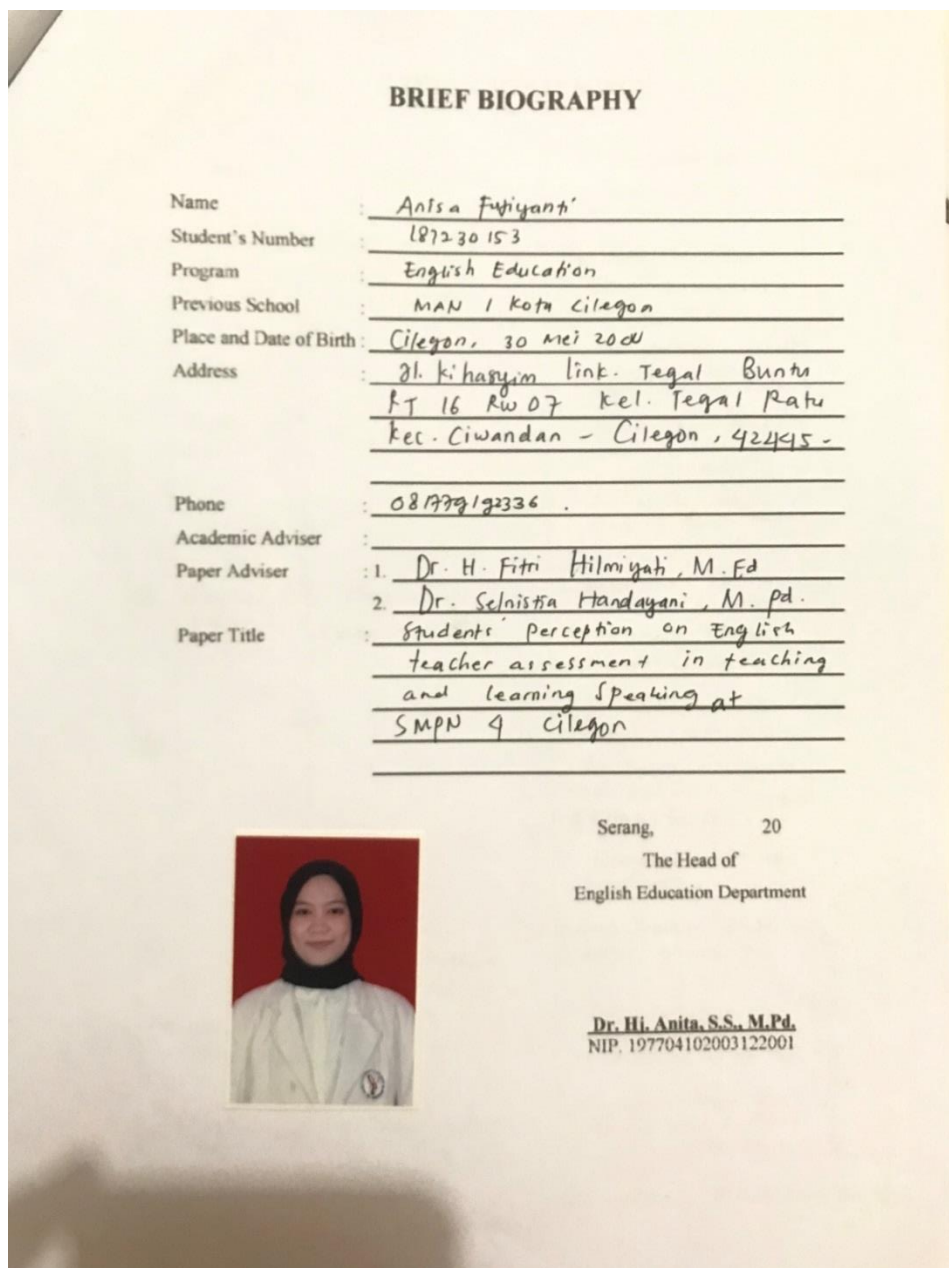 BRIEF BIOGRAPHY
Name : Anisa Fujiyanti
Student's Number : 187230153
Program : English Education
Previous School : MAN 1 Kota Cilegon
Place and Date of Birth : Cilegon, 30 Mei 2000
Address : Jl. Ki hasyim link. Tegal Buntu
RT 16 RW 07 Kel. Tegal Ratu
Kec. Ciwandan - Cilegon, 42445-
Phone : 
Academic Adviser :
Paper Adviser : 1. Dr. H. Fitri Hilmiyati, M.Ed
2. Dr. Selnistia Handayani, M.pd.
Paper Title : Students' perception on English
teacher assessment in teaching
and learning Speaking at
SMPN 4 Cilegon
Serang, 20
The Head of
English Education Department
Dr. Hj. Anita, S.S., M.Pd.
NIP. 197704102003122001